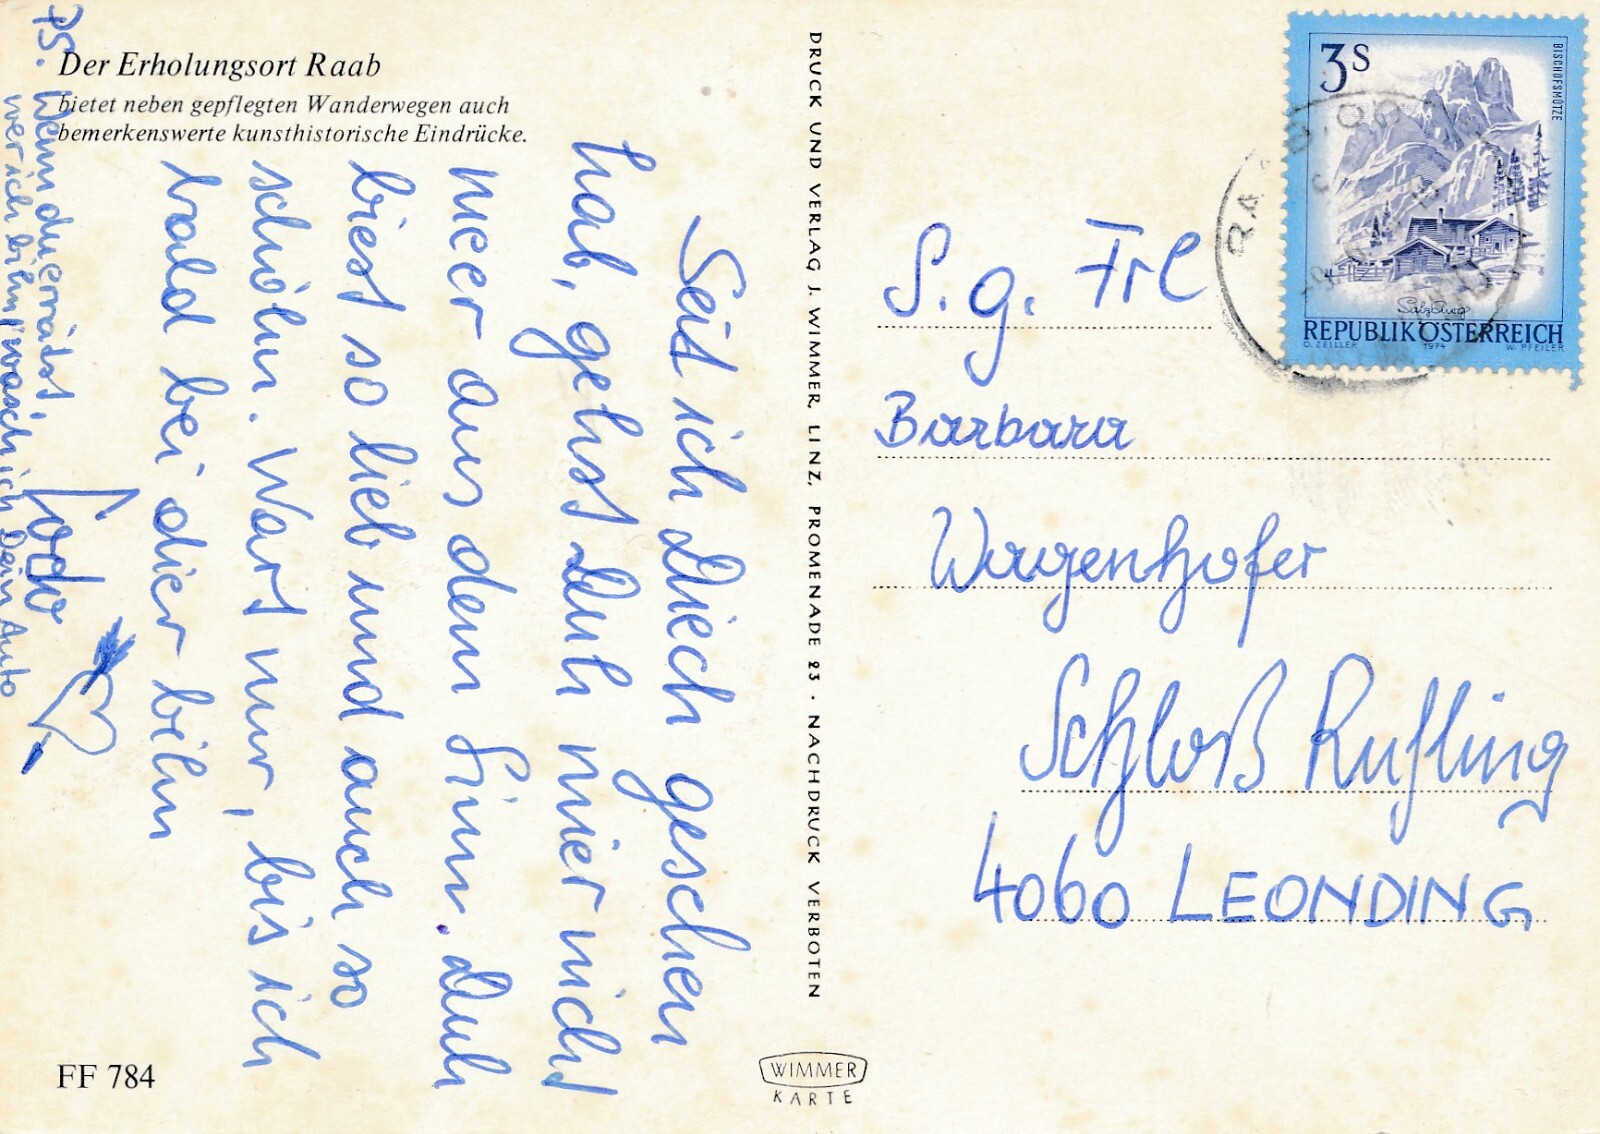 Der Erholungsort Raab
bietet neben gepflegten Wanderwegen auch
bemerkenswerte kunsthistorische Eindrücke.
Seit ich Diech geschen
hab, gehst Duh mier nicht
meer aus dem Sinn. Duh
biest so lieb und auch so
schöhn. Wart nur, bis ich
bald bei dier bihn
Lodo
PS. Wenn du errätst,
wer ich bihn, wasch ich Dein Auto
FF 784
DRUCK UND VERLAG J. WIMMER, LINZ, PROMENADE 23 · NACHDRUCK VERBOTEN
WIMMER
KARTE
3S
BISCHOFSMÜTZE
Salzburg
REPUBLIK ÖSTERREICH
O. ZEILLER 1974 W. PFEILER
S. g. Frl
Barbara
Wagenhofer
Schloß Rufling
4060 LEONDING